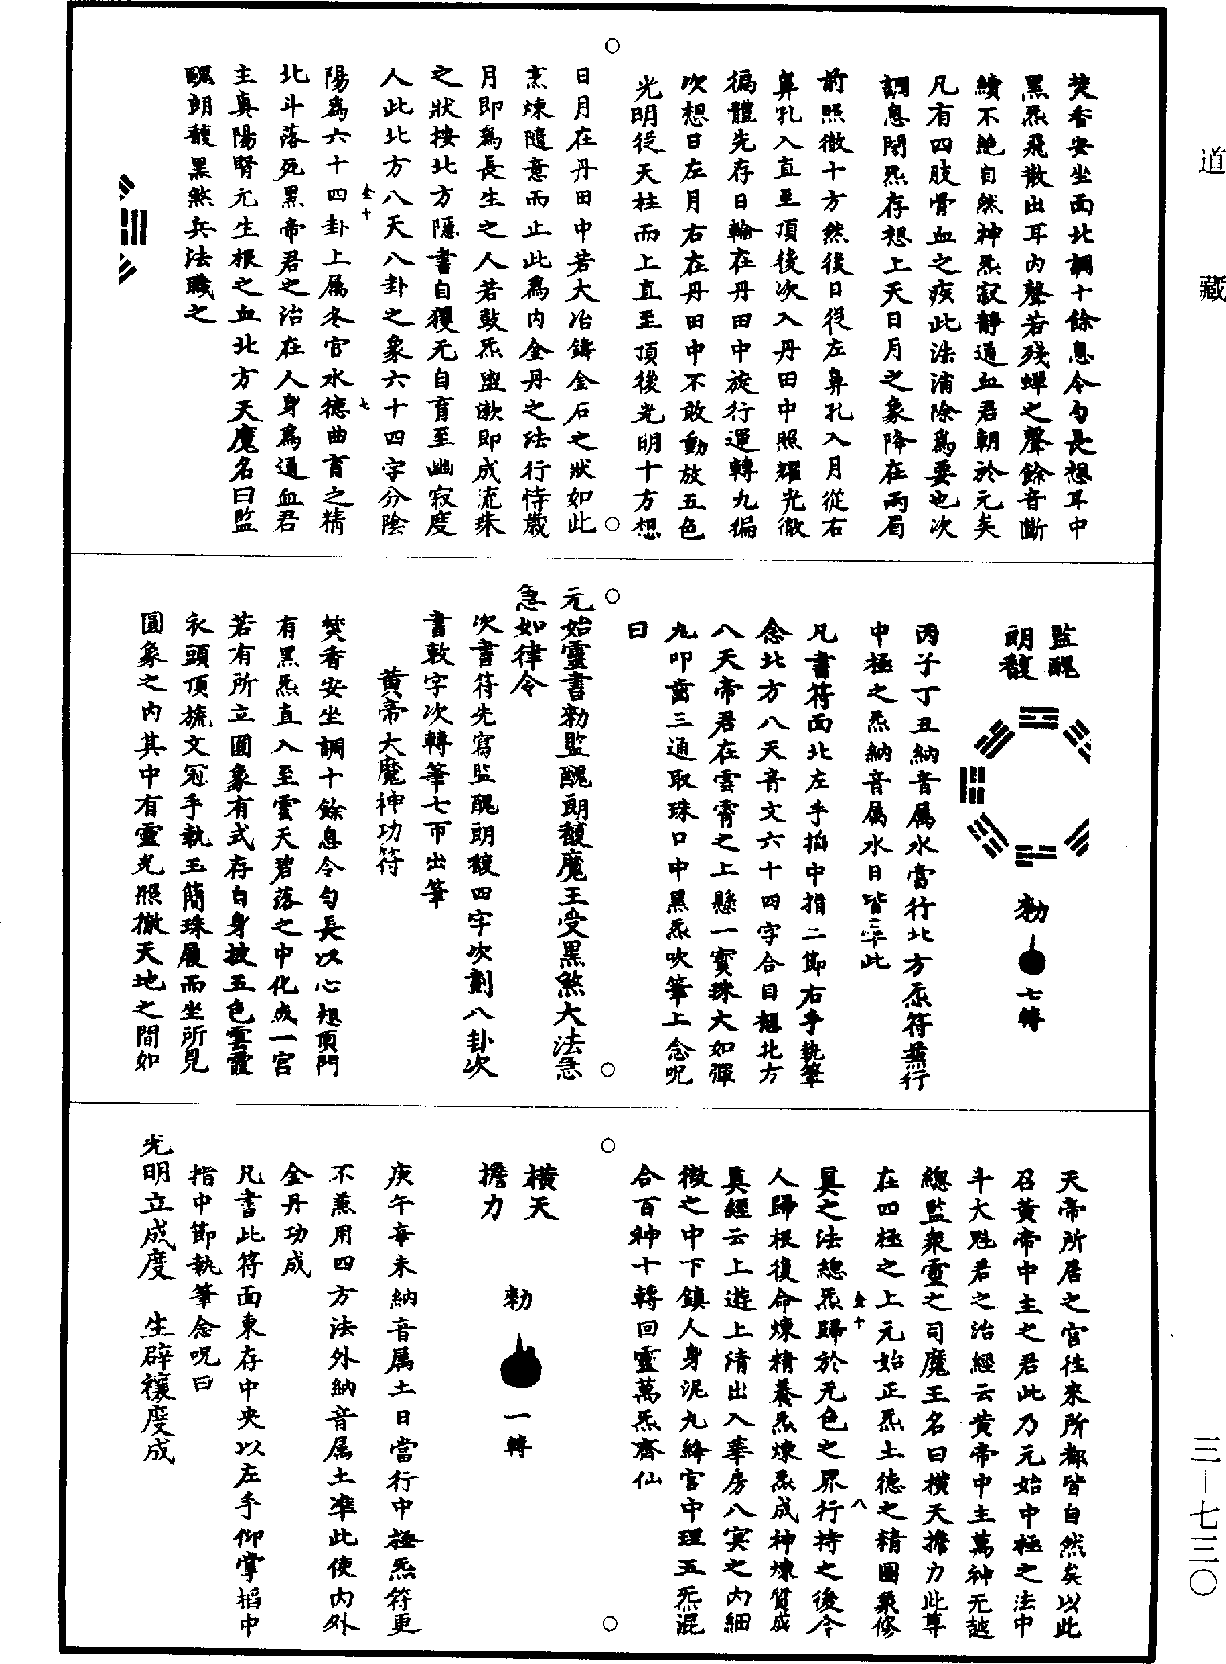 道藏
焚香安坐面北調十餘息令勻長想耳中
黑炁飛散出耳內聲若殘蟬之聲餘音斷
續不絕自然神炁寂靜通血君朝於元矣
凡有四肢骨血之疾此法消除爲要也次
調息閉炁存想上天日月之象降在兩眉
前照徹十方然後日從左鼻孔入月從右
鼻孔入直至頂後次入丹田中照耀光徹
徧體先存日輪在丹田中旋行運轉九徧
次想日左月右在丹田中不敢動放五色
光明從天柱而上直至頂後光明十方想
日月在丹田中若大冶鑄金石之狀如此
烹煉隨意而止此爲內金丹之法行持嚴
月即爲長生之人若鼓炁盥漱即成流珠
之狀按北方隱書自玃无自育至幽寂度
人此北方八天八卦之象六十四字分陰
陽爲六十四卦上属冬官水德曲育之精
北斗落死黑帝君之治在人身爲通血君
主真陽腎元生根之血北方天魔名曰監
醜朗馥黑煞兵法職之
監醜
朗馥
勑
七轉
丙子丁丑納音属水當行北方炁符兼行
中極之炁納音属水日皆準此
凡書符面北左手掐中指二節右手執筆
念北方八天音文六十四字合目想北方
八天帝君在雲霄之上懸一寶珠大如彈
丸叩齒三通取珠口中黑炁吹筆上念呪
曰
元始靈書勑監醜朗馥魔王受黑煞大法急
急如律令
次書符先寫監醜朗馥四字次劃八卦次
書敕字次轉筆七帀出筆
黄帝大魔神功符
焚香安坐調十餘息令勻長以心想頂門
有黑炁直入至雲天碧落之中化成一宮
若有所立圓象有式存自身披五色雲霞
衣頭頂旒文冠手執玉簡珠履而坐所見
圓象之內其中有靈光照徹天地之間如
天帝所居之宮往來所都皆自然矣以此
召黃帝中主之君此乃元始中極之法中
斗大魁君之治經云黄帝中主萬神无越
總監衆靈之司魔王名曰橫天擔力此尊
在四極之上元始正炁土德之精圓象修
真之法總炁歸於无色之界行持之後令
人歸根復命煉精養炁煉炁成神煉質成
真經云上遊上清出入華房八冥之內細
微之中下鎮人身泥丸絳宮中理五炁混
合百神十轉回靈萬炁齊仙
橫天
擔力
勑
一轉
庚午辛未納音属土日當行中極炁符更
不兼用四方法外納音属土準此使內外
金丹功成
凡書此符面東存中央以左手仰掌掐中
指中節執筆念呪曰
光明立成度 生辟禳度成
三—七三〇